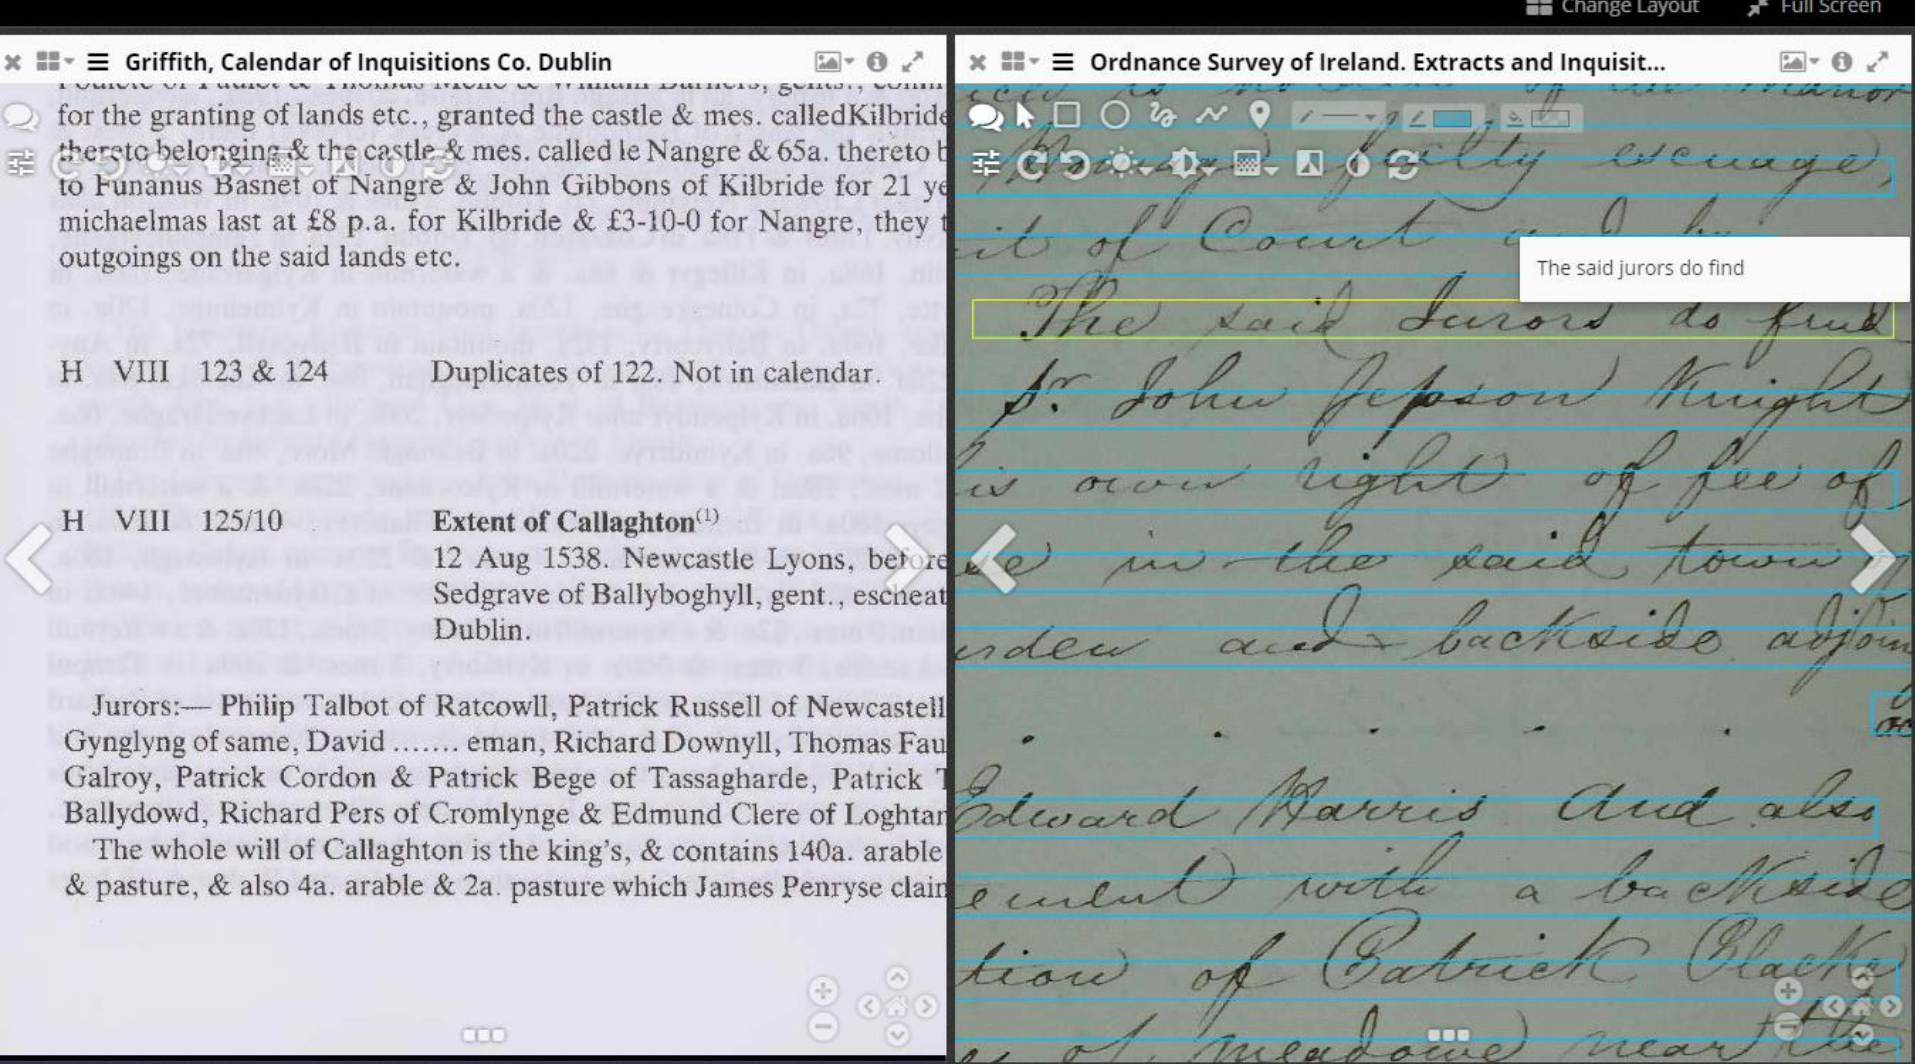 Change Layout Full Screen
Griffith, Calendar of Inquisitions Co. Dublin
for the granting of lands etc., granted the castle & mes. calledKilbride
thereto belonging & the castle & mes. called le Nangre & 65a. thereto b
to Funanus Basnet of Nangre & John Gibbons of Kilbride for 21 ye
michaelmas last at £8 p.a. for Kilbride & £3-10-0 for Nangre, they t
outgoings on the said lands etc.
H VIII 123 & 124 Duplicates of 122. Not in calendar.
H VIII 125/10 Extent of Callaghton(1)
12 Aug 1538. Newcastle Lyons, before
Sedgrave of Ballyboghyll, gent., escheat
Dublin.
Jurors:— Philip Talbot of Ratcowll, Patrick Russell of Newcastell
Gynglyng of same, David ....... eman, Richard Downyll, Thomas Fau
Galroy, Patrick Cordon & Patrick Bege of Tassagharde, Patrick T
Ballydowd, Richard Pers of Cromlynge & Edmund Clere of Loghtan
The whole will of Callaghton is the king's, & contains 140a. arable
& pasture, & also 4a. arable & 2a. pasture which James Penryse claim
Ordnance Survey of Ireland. Extracts and Inquisit...
escuage,
it of Court
The said jurors do find
The said Jurors do find
Sr. John Jepson Knight
is own right of fee of
se in the said town
rden and backside adjoin
Edward Harris And also
ement with a backside
tion of Patrick
of meadowe near the